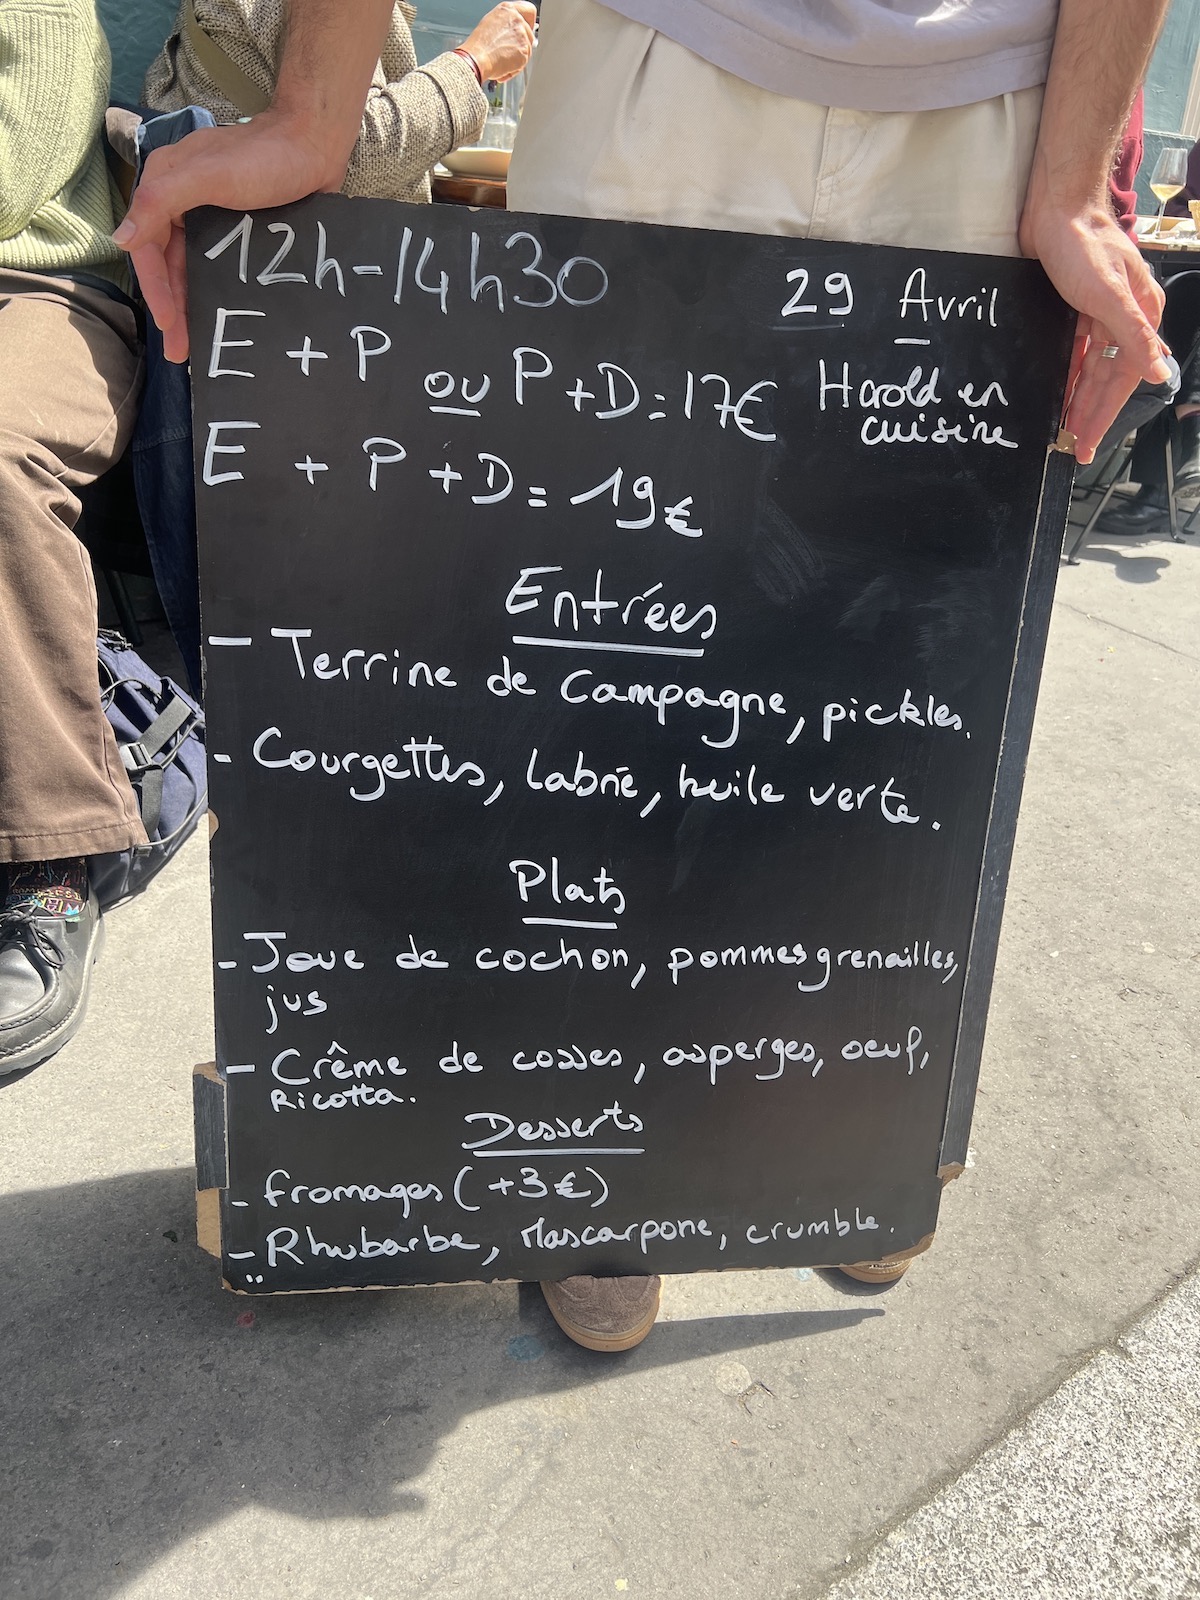 12h-14h30
29 Avril
E + P ou P + D = 17€
Harold en
cuisine
E + P + D = 19€
Entrées
- Terrine de Campagne, pickles.
- Courgettes, labné, huile verte.
Plats
- Joue de cochon, pommes grenailles,
jus
- Crême de cosses, asperges, oeuf,
Ricotta.
Desserts
- fromages (+3€)
- Rhubarbe, Mascarpone, crumble.